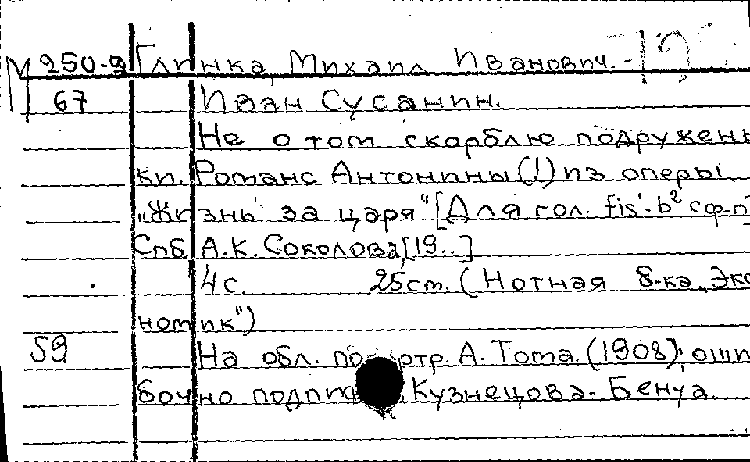 М 250-9 Глинка, Михаил Иванович. -
67 Иван Сусанин.
Не о том скорблю подружень
ки. Романс Антонины (!) из оперы
"Жизнь за царя" [Для гол. fis'-b² с ф-п]
Спб А.К. Соколова [19..]
4с. 25см. (Нотная б-ка "Эко
номик")
59 На обл. портр. А. Тома (1908); оши
бочно Кузнецова-Бенуа.